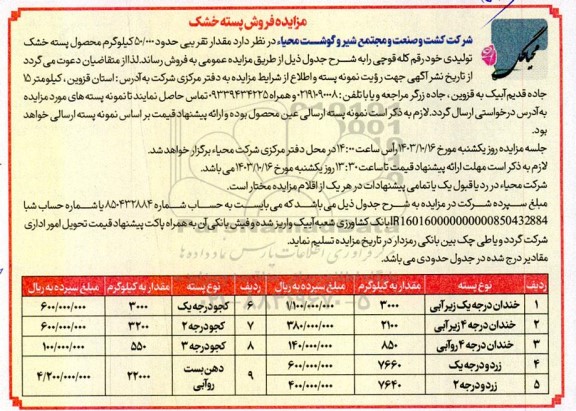 مزایده فروش پسته خشک
شرکت کشت و صنعت و مجتمع شیر و گوشت محیاء در نظر دارد مقدار تقریبی حدود ۵۰/۰۰۰ کیلوگرم محصول پسته خشک
تولیدی خود رقم کله قوچی را به شرح جدول ذیل از طریق مزایده عمومی به فروش رساند. لذا از متقاضیان دعوت می گردد
از تاریخ نشر آگهی جهت رؤیت نمونه پسته و اطلاع از شرایط مزایده به دفتر مرکزی شرکت به آدرس: استان قزوین، کیلومتر ۱۵
جاده قدیم آبیک به قزوین، جاده زرگر مراجعه و یا با تلفن: ۰۲۱۹۱۰۹۰۰۰۸ و همراه ۰۹۳۳۹۴۳۴۲۲۵ تماس حاصل نمایند تا نمونه پسته های مورد مزایده
به آدرس درخواستی ارسال گردد. لازم به ذکر است نمونه پسته ارسالی عین محصول بوده و ارائه پیشنهاد قیمت بر اساس نمونه پسته ارسالی خواهد
بود.
جلسه مزایده روز یکشنبه مورخ ۱۴۰۳/۱۰/۱۶ رأس ساعت ۱۴:۰۰ در محل دفتر مرکزی شرکت محیاء برگزار خواهد شد.
لازم به ذکر است مهلت ارائه پیشنهاد قیمت تا ساعت ۱۳:۳۰ روز یکشنبه مورخ ۱۴۰۳/۱۰/۱۶ می باشد.
شرکت محیاء در رد یا قبول یک یا تمامی پیشنهادات در هر یک از اقلام مزایده مختار است.
مبلغ سپرده شرکت در مزایده به شرح جدول ذیل می باشد که می بایست به حساب شماره ۸۵۰۴۳۲۸۸۴ یا شماره حساب شبا
IR160160000000000850432884 بانک کشاورزی شعبه آبیک واریز شده و فیش بانکی آن به همراه پاکت پیشنهاد قیمت تحویل امور اداری
شرکت گردد و یا طی چک بین بانکی رمزدار در تاریخ مزایده تسلیم نماید.
مقادیر درج شده در جدول حدودی می باشد.
ردیف نوع پسته مقدار به کیلوگرم مبلغ سپرده به ریال ردیف نوع پسته مقدار به کیلوگرم مبلغ سپرده به ریال
۱ خندان درجه یک زیر آبی ۳۰۰۰ ۱/۱۰۰/۰۰۰/۰۰۰ ۶ کجو درجه یک ۳۰۰۰ ۶۰۰/۰۰۰/۰۰۰
۲ خندان درجه ۴ زیر آبی ۲۱۰۰ ۳۸۰/۰۰۰/۰۰۰ ۷ کجو درجه ۲ ۳۲۰۰ ۶۰۰/۰۰۰/۰۰۰
۳ خندان درجه ۴ روآبی ۸۵۰ ۱۴۰/۰۰۰/۰۰۰ ۸ کجو درجه ۳ ۵۵۰ ۱۰۰/۰۰۰/۰۰۰
۴ زرد و درجه یک ۷۶۶۰ ۶۰۰/۰۰۰/۰۰۰ ۹ دهن بست روآبی ۲۲۰۰۰ ۴/۲۰۰/۰۰۰/۰۰۰
۵ زرد و درجه ۲ ۷۶۴۰ ۴۰۰/۰۰۰/۰۰۰